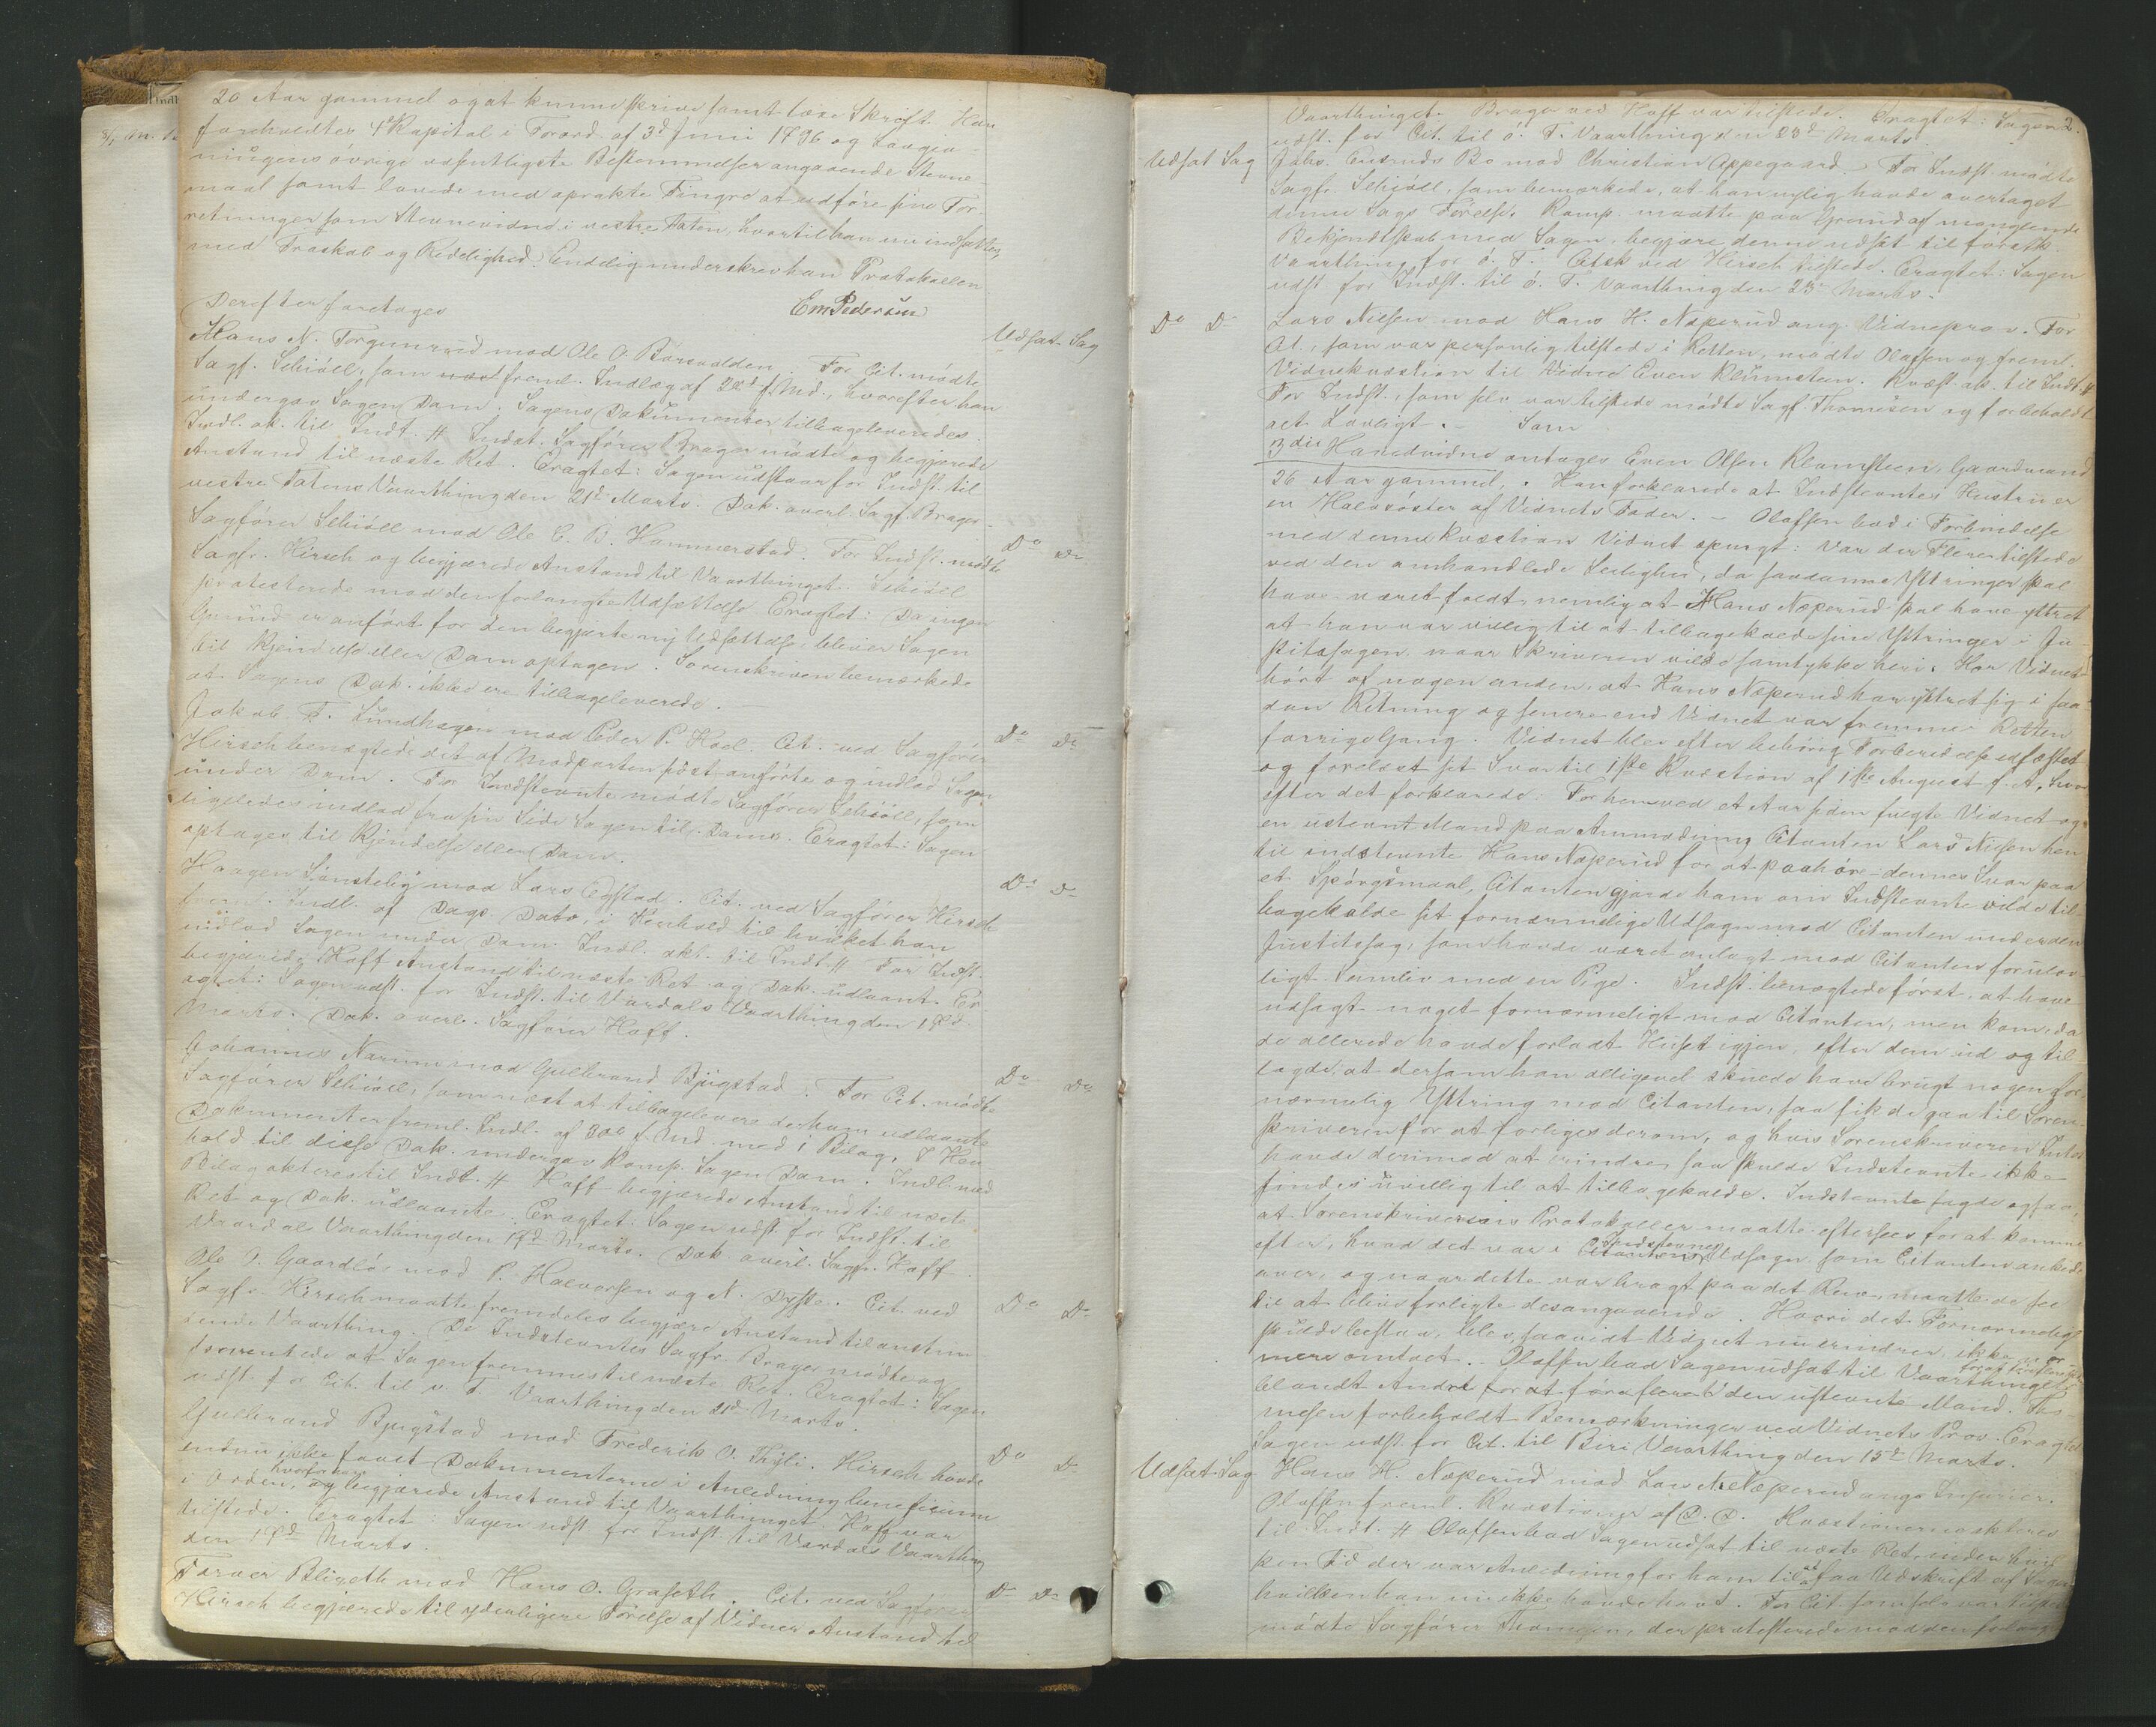 20 Aar gammel og at kunne skrive samt læse Skrift. Han
foreholdtes 4de Kapitel i Forord. af 3d Juni 1796 og Lovgiv-
ningens øvrige væsentligste Bestemmelser angaaende Stevne-
maal samt lovede med oprakte Fingre at udføre sine For-
retninger som Stevnevidne i vestre Toten, hvortil han nu indsattes,
med Troskab og Redelighed. Endelig underskrev han Protokollen
Em Pedersen
Derefter foretages
Udsat Sag
Hans N. Torgunrud mod Ole O. Børsvolden. For Cit. mødte
Sagf. Schiøll, som freml. Indlæg af 28d f. Md., hvorefter han
undergav Sagen Dom. Sagens Dokumenter tilbageleveredes.
Indl. ak. til Indt. # Indst. Sagfører Brager mødte og begjærede
Anstand til næste Ret. Eragtet: Sagen udstaar for Indst. til
vestre Totens Vaarthing den 21d Marts. Dok. overl. Sagf. Brager.
Do Do
Sagfører Schiøll mod Ole C. B. Hammerstad. For Indst. mødte
Sagfr. Hirsch og begjærede Anstand til Vaarthinget. Schiøll
protesterede mod den forlangte Udsættelse. Eragtet: Da ingen
Grund er anført for den begjærte ny Udsættelse, bliver Sagen
til Kjendelse eller Dom optagen. Sorenskriveren bemærkede
at Sagens Dok. ikke ere tilbageleverede.
Do Do
Jakob T. Lundhagen mod Peder P. Hoel. Cit. ved Sagfører
Hirsch benægtede det af Modparten sidst anførte og indlod Sagen
under Dom. For Indstevnte mødte Sagfører Schiøll, som
ligeledes indlod fra sin Side Sagen til Doms. Eragtet: Sagen
optages til Kjendelse eller Dom.
Do Do
Haagen Sønsteby mod Lars Øfstad. Cit. ved Sagfører Hirsch
freml. Indl. af Dags Dato, i Henhold til hvilket han
indlod Sagen under Dom. Indl. akt. til Indt. # For Indst.
begjærede Hoff Anstand til næste Ret og Dok. udlaant. Er-
agtet: Sagen udst. for Indst. til Vardals Vaarthing den 18d
Marts. Dok. overl. Sagfører Hoff.
Do Do
Johannes Narum mod Gulbrand Bjugstad. For Cit. mødte
Sagfører Schiøll, som næst at tilbagelevere de ham udlaante
Dokumenter freml. Indl. af 30d f. Md. med 1 Bilag. I Hen-
hold til disse Dok. undergav Komp. Sagen Dom. Indl. med
Bilag akteres til Indt. # Hoff begjærede Anstand til næste
Ret og Dok. udlaante. Eragtet: Sagen udst. for Indst. til
Vaardals Vaarthing den 18d Marts. Dok. overl. Sagfr. Hoff.
Do Do
Ole T. Gaardløs mod P. Halvorsen og N. Dyste. Cit. ved
Sagfr. Hirsch maatte fremdeles begjære Anstand til anstun-
dende Vaarthing. De Indstevntes Sagfr. Brager mødte og
forventede at Sagen fremmes til næste Ret. Eragtet: Sagen
udst. for Cit. til v. T. Vaarthing den 21d Marts.
Do Do
Gulbrand Bjugstad mod Frederik O. Thyli. Hirsch havde
endnu ikke faaet Dokumenterne i Anledning beneficium
i Orden, hvorfor han begjærede Anstand til Vaarthinget. Hoff var
tilstede. Eragtet: Sagen udst. for Indst. til Vardals Vaarthing
den 18d Marts.
Do Do
Farver Blizeth mod Hans O. Graseth. Cit. ved Sagfører
Hirsch begjærede til yderligere Førelse af Vidner Anstand til
2.
Vaarthinget. Brager ved Hoff var tilstede. Eragtet: Sagen
udst. for Cit. til ø. T. Vaarthing den 23d Marts.
Udsat Sag
Johs. Eusruds Bo mod Christian Oppegaard. For Indst. mødte
Sagfr. Schiøll, som bemærkede, at han nylig havde overtaget
denne Sags Førelse. Komp. maatte paa Grund af manglende
Bekjendtskab med Sagen, begjære denne udsat til førstk.
Vaarthing for ø. T. Citsk ved Hirsch tilstede. Eragtet: Sagen
udst. for Indst. til ø. T. Vaarthing den 23d Marts.
Do Do
Lars Nilsen mod Hans H. Næperud ang. Vidneprov. For
Cit., som var personlig tilstede i Retten, mødte Olafsen og freml.
Vidnekvæstion til Vidne Even Klumsteen. Kvæst. ak. til Indt. #
For Indst., som selv var tilstede mødte Sagf. Thomesen og forbeholdt
alt Lovligt. Som
3die Hovedvidne antages Even Olsen Klomsteen, Gaardmand
26 Aar gammel. Han forklarede at Indstevntes Hustru er
en Halvsøster af Vidnets Fader. – Olafsen bad i Forbindelse
med denne Kvæstion Vidnet spurgt: Var der Flere tilstede
ved den omhandlede Leilighed, da saadanne Yttringer skal
have været faldt, nemlig at Hans Næperud skal have yttret
at han var villig til at tilbagekalde sine Yttringer i Ju-
stitssagen, naar Skriveren vilde samtykke heri. Har Vidnet
hørt af nogen anden, at Hans Næperud har yttret sig i saa-
dan Retning og senere end Vidnet var fremme i Retten
forrige Gang. Vidnet blev efter behørig Forberedelse edfæstet
og forelæst sit Svar til 1ste Kvæstion af 1ste August f. A., hvor-
efter det forklarede: For henved et Aar siden fulgte Vidnet og
en ustevnt Mand paa Anmodning Citanten Lars Nilsen hen
til indstevnte Hans Næperud for at paahøre dennes Svar paa
et Spørgsmaal, Citanten gjorde ham om Indstevnte vilde til-
bagekalde sit fornærmelige Udsagn mod Citanten under den
Justitssag, som havde været anlagt mod Citanten for ulov-
ligt Samliv med en Pige. Indst. benægtede først, at have
udsagt noget fornærmeligt mod Citanten, men kom, da
de allerede havde forladt Huset igjen, efter dem ud og til-
sagde, at dersom han alligevel skulde have brugt nogen for-
nærmelig Yttring mod Citanten, saa fik de gaa til Soren-
skriveren for at forliges derom, og hvis Sorenskriveren Intet
havde derimod at erindre, saa skulde Indstevnte ikke
findes uvillig til at tilbagekalde. Indstevnte sagde ogsaa,
at Sorenskriverens Protokoller maatte eftersees for at komme
efter, hvad det var i Indstevntes Udsagn som Citanten ankede
over, og naar dette var bragt paa det Rene, maatte de see
til at blive forligte desangaaende. Hvori det Fornærmelige
skulde bestaa, blev, saavidt Vidnet nu erindrer, ikke
mere omtalt. – Olafsen bad Sagen udsat til Vaarthinget
blandt Andet for at føre den ustevnte Mand. Tho-
mesen forbeholdt Bemærkninger ved Vidnets Prov. Eragtet
Sagen udst. for Cit. til Biri Vaarthing den 15d Marts.
Udsat Sag
Hans H. Næperud mod Lars Næperud ang. Injurier.
Olafsen freml. Kvæstioner af D. D. Kvæstionerne akteres
til Indt. # Olafsen bad Sagen udsat til næste Ret, inden hvil-
ken Tid der var Anledning for ham til at faa Udskrift af Sagen
hvilken han nu ikke havde havt. For Cit. som selv var tilstede
mødte Sagfører Thomesen, der protesterede mod den forlangte